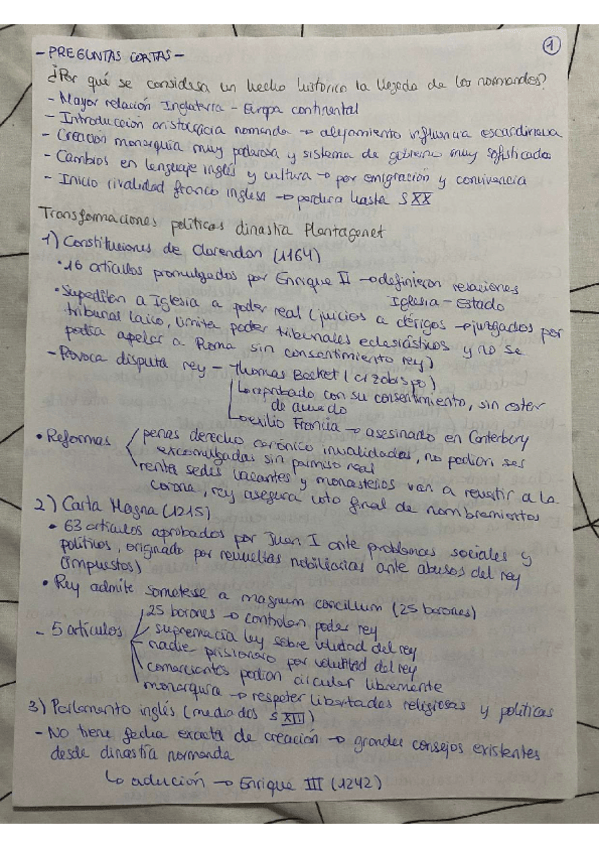 - PREGUNTAS CORTAS -
1
¿Por qué se considera un hecho histórico la llegada de los normandos?
- Mayor relación Inglaterra - Europa continental
- Introducción aristocracia normanda → alejamiento influencia escandinava
- Creación monarquía muy poderosa y sistema de gobierno muy sofisticado
- Cambios en lenguaje inglés y cultura → por emigración y convivencia
- Inicio rivalidad franco inglesa → perdura hasta S XX
Transformaciones políticas dinastía Plantagenet
1) Constituciones de Clarendon (1164)
• 16 artículos promulgados por Enrique II → definieron relaciones
Iglesia - Estado
• Supeditan a Iglesia a poder real (juicios a clérigos → juzgados por
tribunal laico, limita poder tribunales eclesiásticos y no se
podía apelar a Roma sin consentimiento rey)
- Provoca disputa rey - Thomas Becket (arzobispo)
↳ aprobado con su consentimiento, sin estar
de acuerdo
↳ exilio Francia → asesinado en Canterbury
• Reformas penas derecho canónico invalidadas, no podían ser
excomulgadas sin permiso real
renta sedes vacantes y monasterios van a revertir a la
corona, rey asegura voto final de nombramientos
2) Carta Magna (1215)
• 63 artículos aprobados por Juan I ante problemas sociales y
políticos, originado por revueltas nobiliarias ante abusos del rey
(impuestos)
• Rey admite someterse a magnum concillium (25 barones)
25 barones → controlan poder rey
- 5 artículos supremacía ley sobre voluntad del rey
nadie prisionero por voluntad del rey
comerciantes podían circular libremente
monarquía → respetar libertades religiosas y políticas
3) Parlamento inglés (mediados S XIII)
- No tiene fecha exacta de creación → grandes consejos existentes
desde dinastía normanda
↳ → Enrique III (1242)